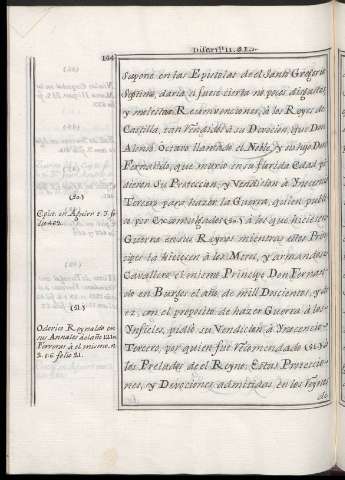 164
Supone en las Epistolas de el Santo Gregorio
Septimo, daria ò fuese cierta no pocos disgustos,
y molestas Reconvenciones, à los Reyes de
Castilla, tan rendidos à su Devocion, que Don
Alonso Octavo llamado el Noble, y su hijo Don
Fernando, que murio en su florida Edad pi
dieron su Proteccion, y Vendicion à Ynocencio
Tercero para hazer la Guerra, quien publi
ca por Excomulgados (50) à los que hicieren
Guerra en sus Reynos mientras estos Princi
pes la hiciesen à los Moros, y armandose
Cavallero el mismo Principe Don Fernan
do en Burgos el año, de mil Doscientos, y di
ez, con el proposito de hazer Guerra à los
Ynfieles, pidiò su Vendicion à Ynocencio
Tercero, por quien fue recomendado (51) à
los Prelados de el Reyno. Estas Proteccio
nes, y Devociones admitidas, en los
de
(50.)
Epist. en Aguirr. t. 3. fo
lio 402.
(51.)
Oderico Reynaldo en
sus Annales del año
3. 56 folio 21.